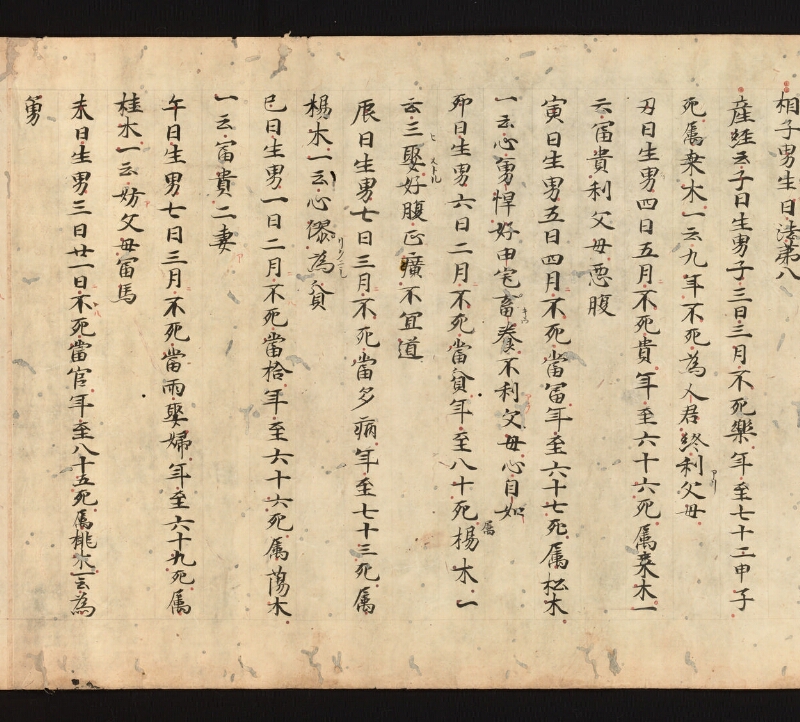 相子男生日法第八
産經云子日生男子三日三月不死樂年至七十二甲子
死属棗木一云九年不死為人君終利父母
丑日生男四日五月不死貴年至六十六死属棗木一
云富貴利父母悪腹
寅日生男五日四月不死當冨年至六十七死属松木
一云心勇悍好田宅畜養不利父母心自如
卯日生男六日二月不死當貧年至八十死属楊木一
云三娶好腹正癀不宜道
辰日生男七日三月不死當多病年至七十三死属
楊木一云心為貧
巳日生男一日二月不死當拾年至六十六死属蕩木
一云富貴二妻
午日生男七日三月不死當兩娶婦年至六十九死属
桂木一云妨父母冨馬
未日生男三日廿一日不死當官年至八十五死属桃木一云為
勇